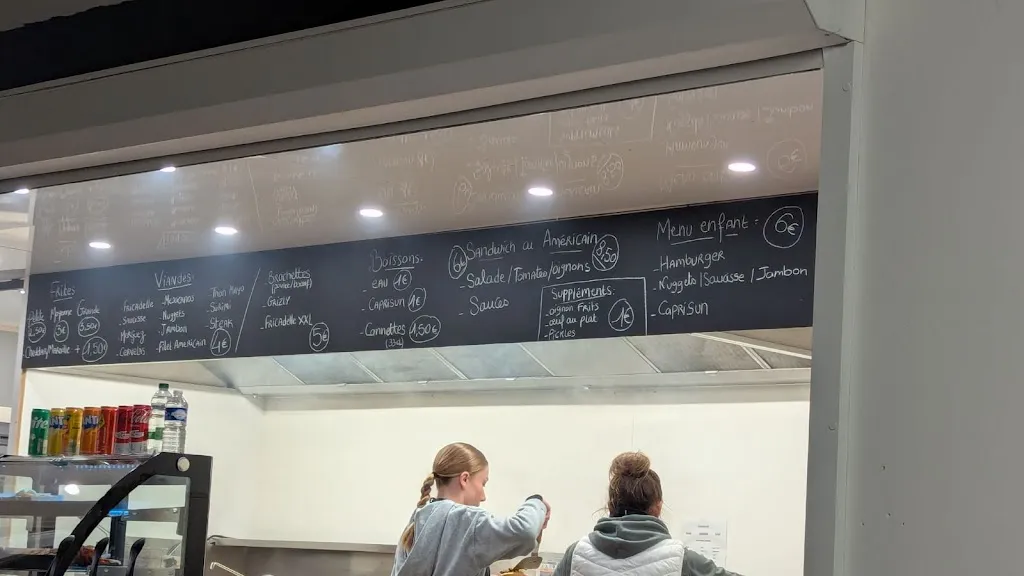 Frites
Moyenne Grande
2,50 3€ 3,50
+ 1,50
Viandes
Fricadelle
Saucisse
Merguez
Cervelas
- Mexicanos
- Nuggets
- Jambon
- Filet Américain
Thon Mayo
Steak
4€
Brochettes
- Grizly
- Fricadelle XXL
5€
Boissons:
- eau 1€
- Caprisun 1€
- Cannettes 1,50€
(33cl)
Sandwich ou Américain
- Salade / Tomates / oignons
- Sauces
Suppléments:
- oignon Frits
- oeuf au plat
- Pickles
1€
Menu enfant: 6€
- Hamburger
- Nuggets / Saucisse / Jambon
- Caprisun